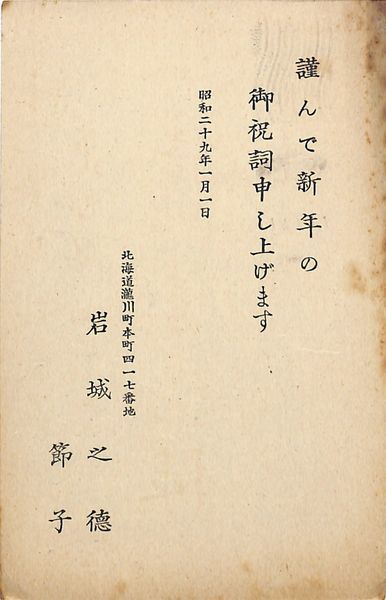 謹んで新年の
御祝詞申し上げます
昭和二十九年一月一日
北海道瀧川町本町四一七番地
岩城之徳
節子